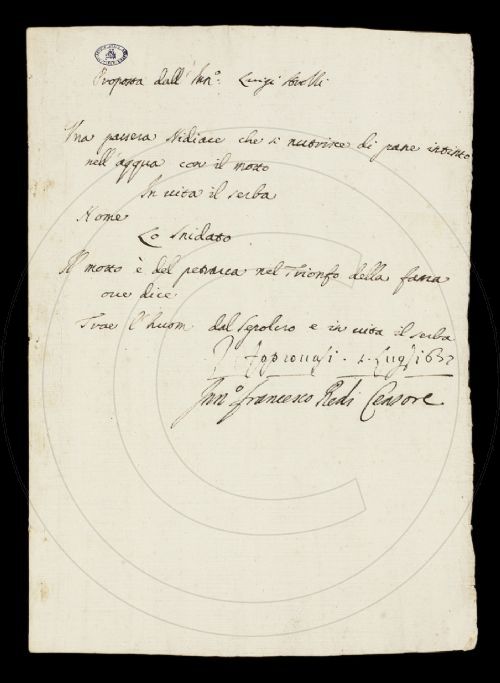 Proposta dall' Inn.º Luigi
Una passera Nidiace che si nutrisce di pane intinto
nell acqua con il motto
In vita il serba
Nome
Lo Snidato
Il motto è del petrarca nel Trionfo della fama
ove dice
Trae l'huom dal sepolcro e in vita il serba
Approuasi
Inn.º francesco Redi Censore